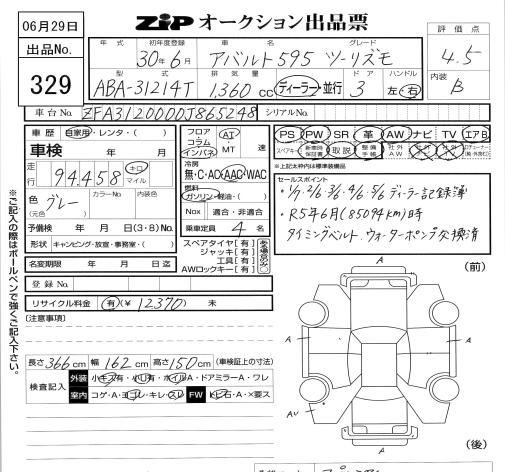 06月29日
出品No.
329
ZIP オークション出品票
年式 初年度登録 車名 グレード
30年6月 アバルト595 ツーリズモ
型式 排気量 ドア ハンドル
ABA-31214T 1,360cc ディーラー・並行 3 左・右
評価点
4.5
内装
B
車台No. ZFA3120000J865248 シリアルNo.
車歴 自家用・レンタ・( )
車検 年 月
走行 94,458 キロ マイル
色 グレー (元色) カラーNo 内装色
予備検 年 月 日(3・8)No.
形状 キャンピング・放宣・事務室・( )
名変期限 年 月 日迄
フロア コラム インパネ AI MT 速
冷房 無・C・AC・AAC・WAC
燃料 ガソリン・軽油・( )
Nox 適合・非適合
乗車定員 4 名
スペアタイヤ[有]
ジャッキ[有]
工具[有]
AWロックキー[有]
PS PW SR 革 AW ナビ TV エアB
スペアキー 新車時保証書 取説 整備手帳 社外AW 社外ナビ 社外TV
※上記太枠内は標準装備品
セールスポイント
・1/1, 2/6, 3/6, 4/6, 5/6 ディーラー記録簿
・R5年6月(85094km)時
タイミングベルト、ウォーターポンプ交換済
登録No.
リサイクル料金 有(¥ 12370 ) 未
[注意事項]
※ご記入の際はボールペンで強くご記入下さい。
長さ366cm 幅162cm 高さ150cm(車検証上の寸法)
検査記入 外装 小キズ有・小凹有・ホイルA・ドアミラーA・ワレ
室内 コゲ・A・ヨゴレ・キレ・スレ FW トビ石・A・×要ス
(前)
A
A
A
A
AV
A
(後)